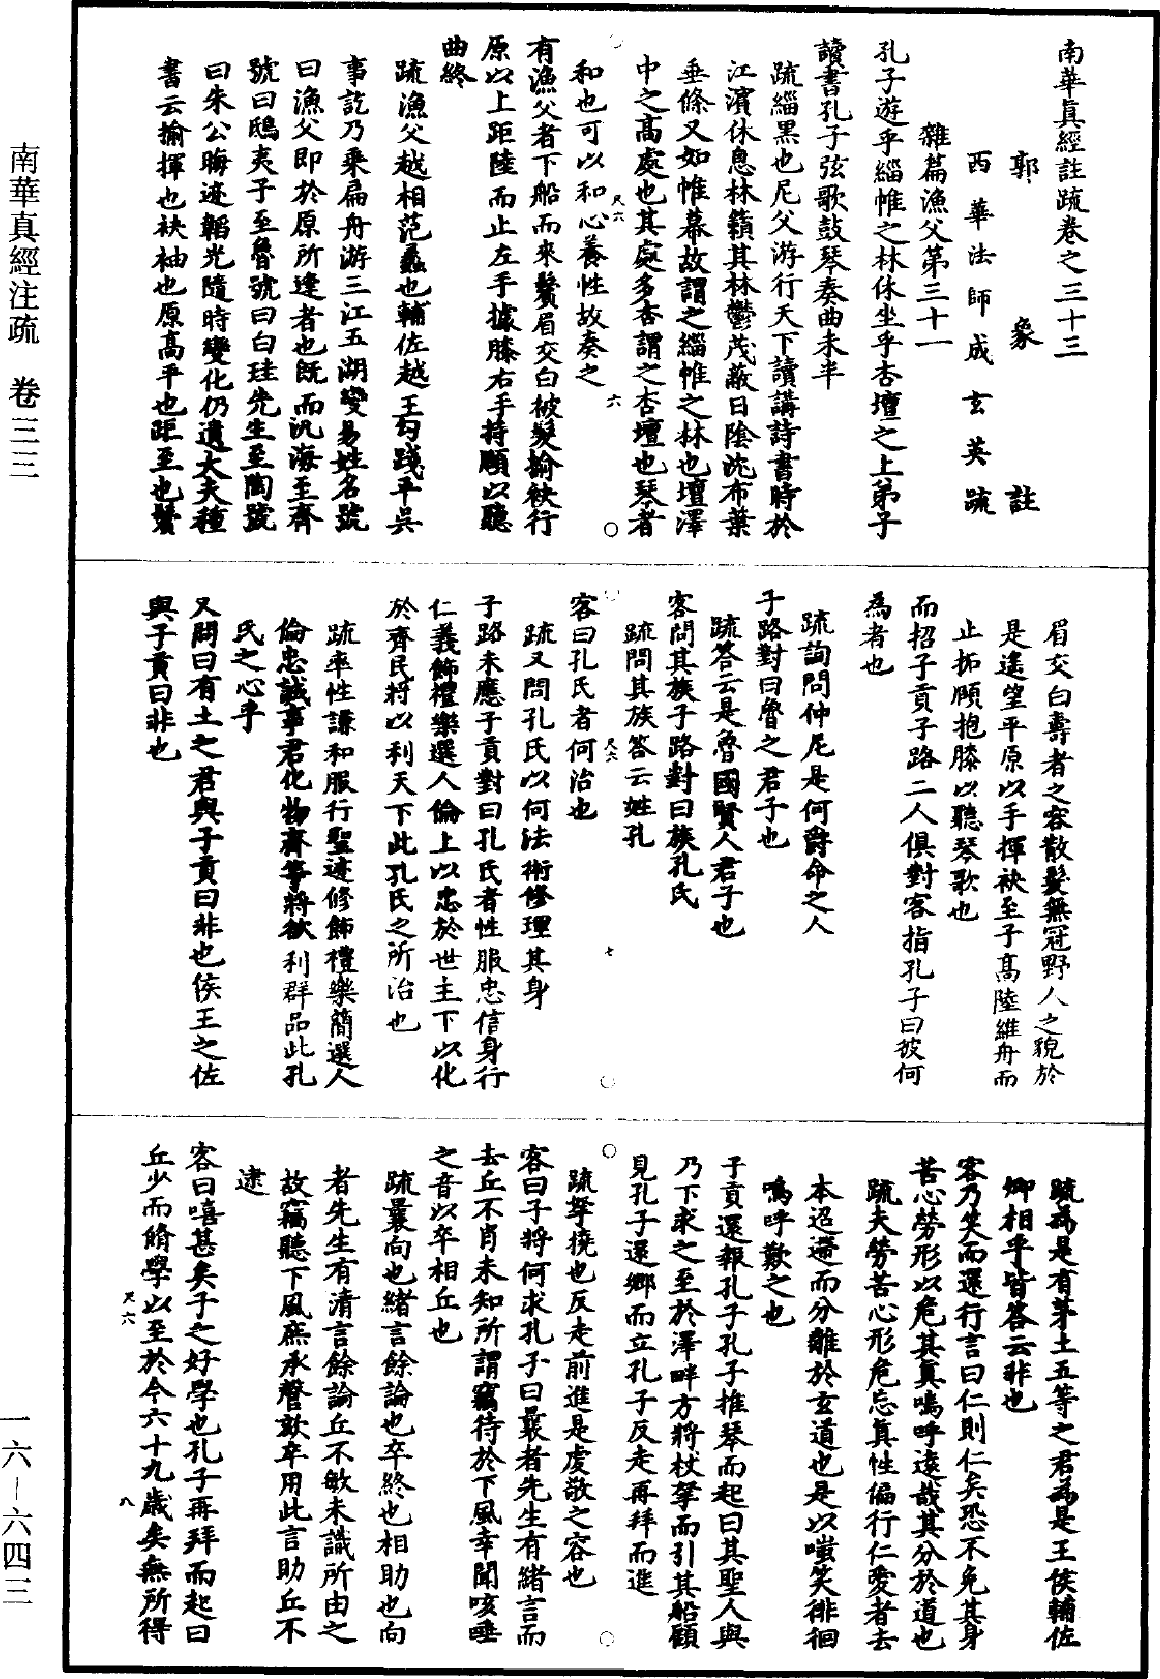 南華真經註疏卷之三十三
郭象註
西華法師成玄英疏
雜篇漁父第三十一
孔子遊乎緇帷之林休坐乎杏壇之上弟子
讀書孔子弦歌鼓琴奏曲未半
疏緇黑也尼父游行天下讀講詩書時於
江濱休息林籟其林鬱茂蔽日陰沈布葉
垂條又如帷幕故謂之緇帷之林也壇澤
中之高處也其處多杏謂之杏壇也琴者
和也可以和心養性故奏之
尺六
六
有漁父者下船而來鬢眉交白被髮揄袂行
原以上距陸而止左手據膝右手持頤以聽
曲終
疏漁父越相范蠡也輔佐越王勾踐平吳
事訖乃乘扁舟游三江五湖變易姓名號
曰漁父即於原所逢者也既而汎海至齊
號曰鴟夷子至魯號曰白珪先生至陶號
曰朱公晦迹韜光隨時變化仍遺大夫種
書云揄揮也袂袖也原高平也距至也鬢
眉交白壽者之容散髮無冠野人之貌於
是遙望平原以手揮袂至于高陸維舟而
止拓頤抱膝以聽琴歌也
而招子貢子路二人俱對客指孔子曰彼何
為者也
疏詢問仲尼是何爵命之人
子路對曰魯之君子也
疏答云是魯國賢人君子也
客問其族子路對曰族孔氏
疏問其族答云姓孔
尺六
七
客曰孔氏者何治也
疏又問孔氏以何法術修理其身
子路未應子貢對曰孔氏者性服忠信身行
仁義飾禮樂選人倫上以忠於世主下以化
於齊民將以利天下此孔氏之所治也
疏率性謙和服行聖迹修飾禮樂簡選人
倫忠誠事君化物齊等將欲利群品此孔
氏之心乎
又問曰有土之君與子貢曰非也侯王之佐
與子貢曰非也
疏為是有茅土五等之君為是王侯輔佐
卿相乎皆答云非也
客乃笑而還行言曰仁則仁矣恐不免其身
苦心勞形以危其真嗚呼遠哉其分於道也
疏夫勞苦心形危忘真性偏行仁愛者去
本迢遰而分離於玄道也是以嗤笑徘徊
嗚呼歎之也
子貢還報孔子孔子推琴而起曰其聖人與
乃下求之至於澤畔方將杖拏而引其船顧
見孔子還鄉而立孔子反走再拜而進
疏拏橈也反走前進是虔敬之容也
客曰子將何求孔子曰曩者先生有緒言而
去丘不肖未知所謂竊待於下風幸聞咳唾
之音以卒相丘也
疏曩向也緒言餘論也卒終也相助也向
者先生有清言餘論丘不敏未識所由之
故竊聽下風庶承謦欬卒用此言助丘不
逮
客曰嘻甚矣子之好學也孔子再拜而起曰
丘少而脩學以至於今六十九歲矣無所得
尺六
八
南華真經注疏 卷三三
一六－六四三